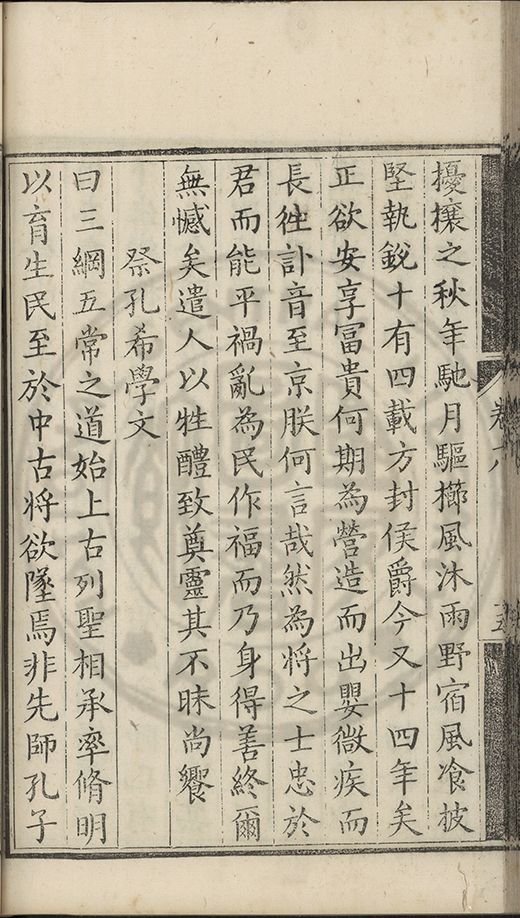 擾攘之秋年馳月驅櫛風沐雨野宿風飡披
堅執銳十有四載方封侯爵今又十四年矣
正欲安享冨貴何期為營造而出嬰微疾而
長徃訃音至京朕何言哉然為將之士忠於
君而能平禍亂為民作福而乃身得善終爾
無憾矣遣人以牲醴致奠靈其不昧尚饗
祭孔希學文
曰三綱五常之道始上古列聖相承率脩明
以育生民至於中古將欲墜焉非先師孔子
卷六